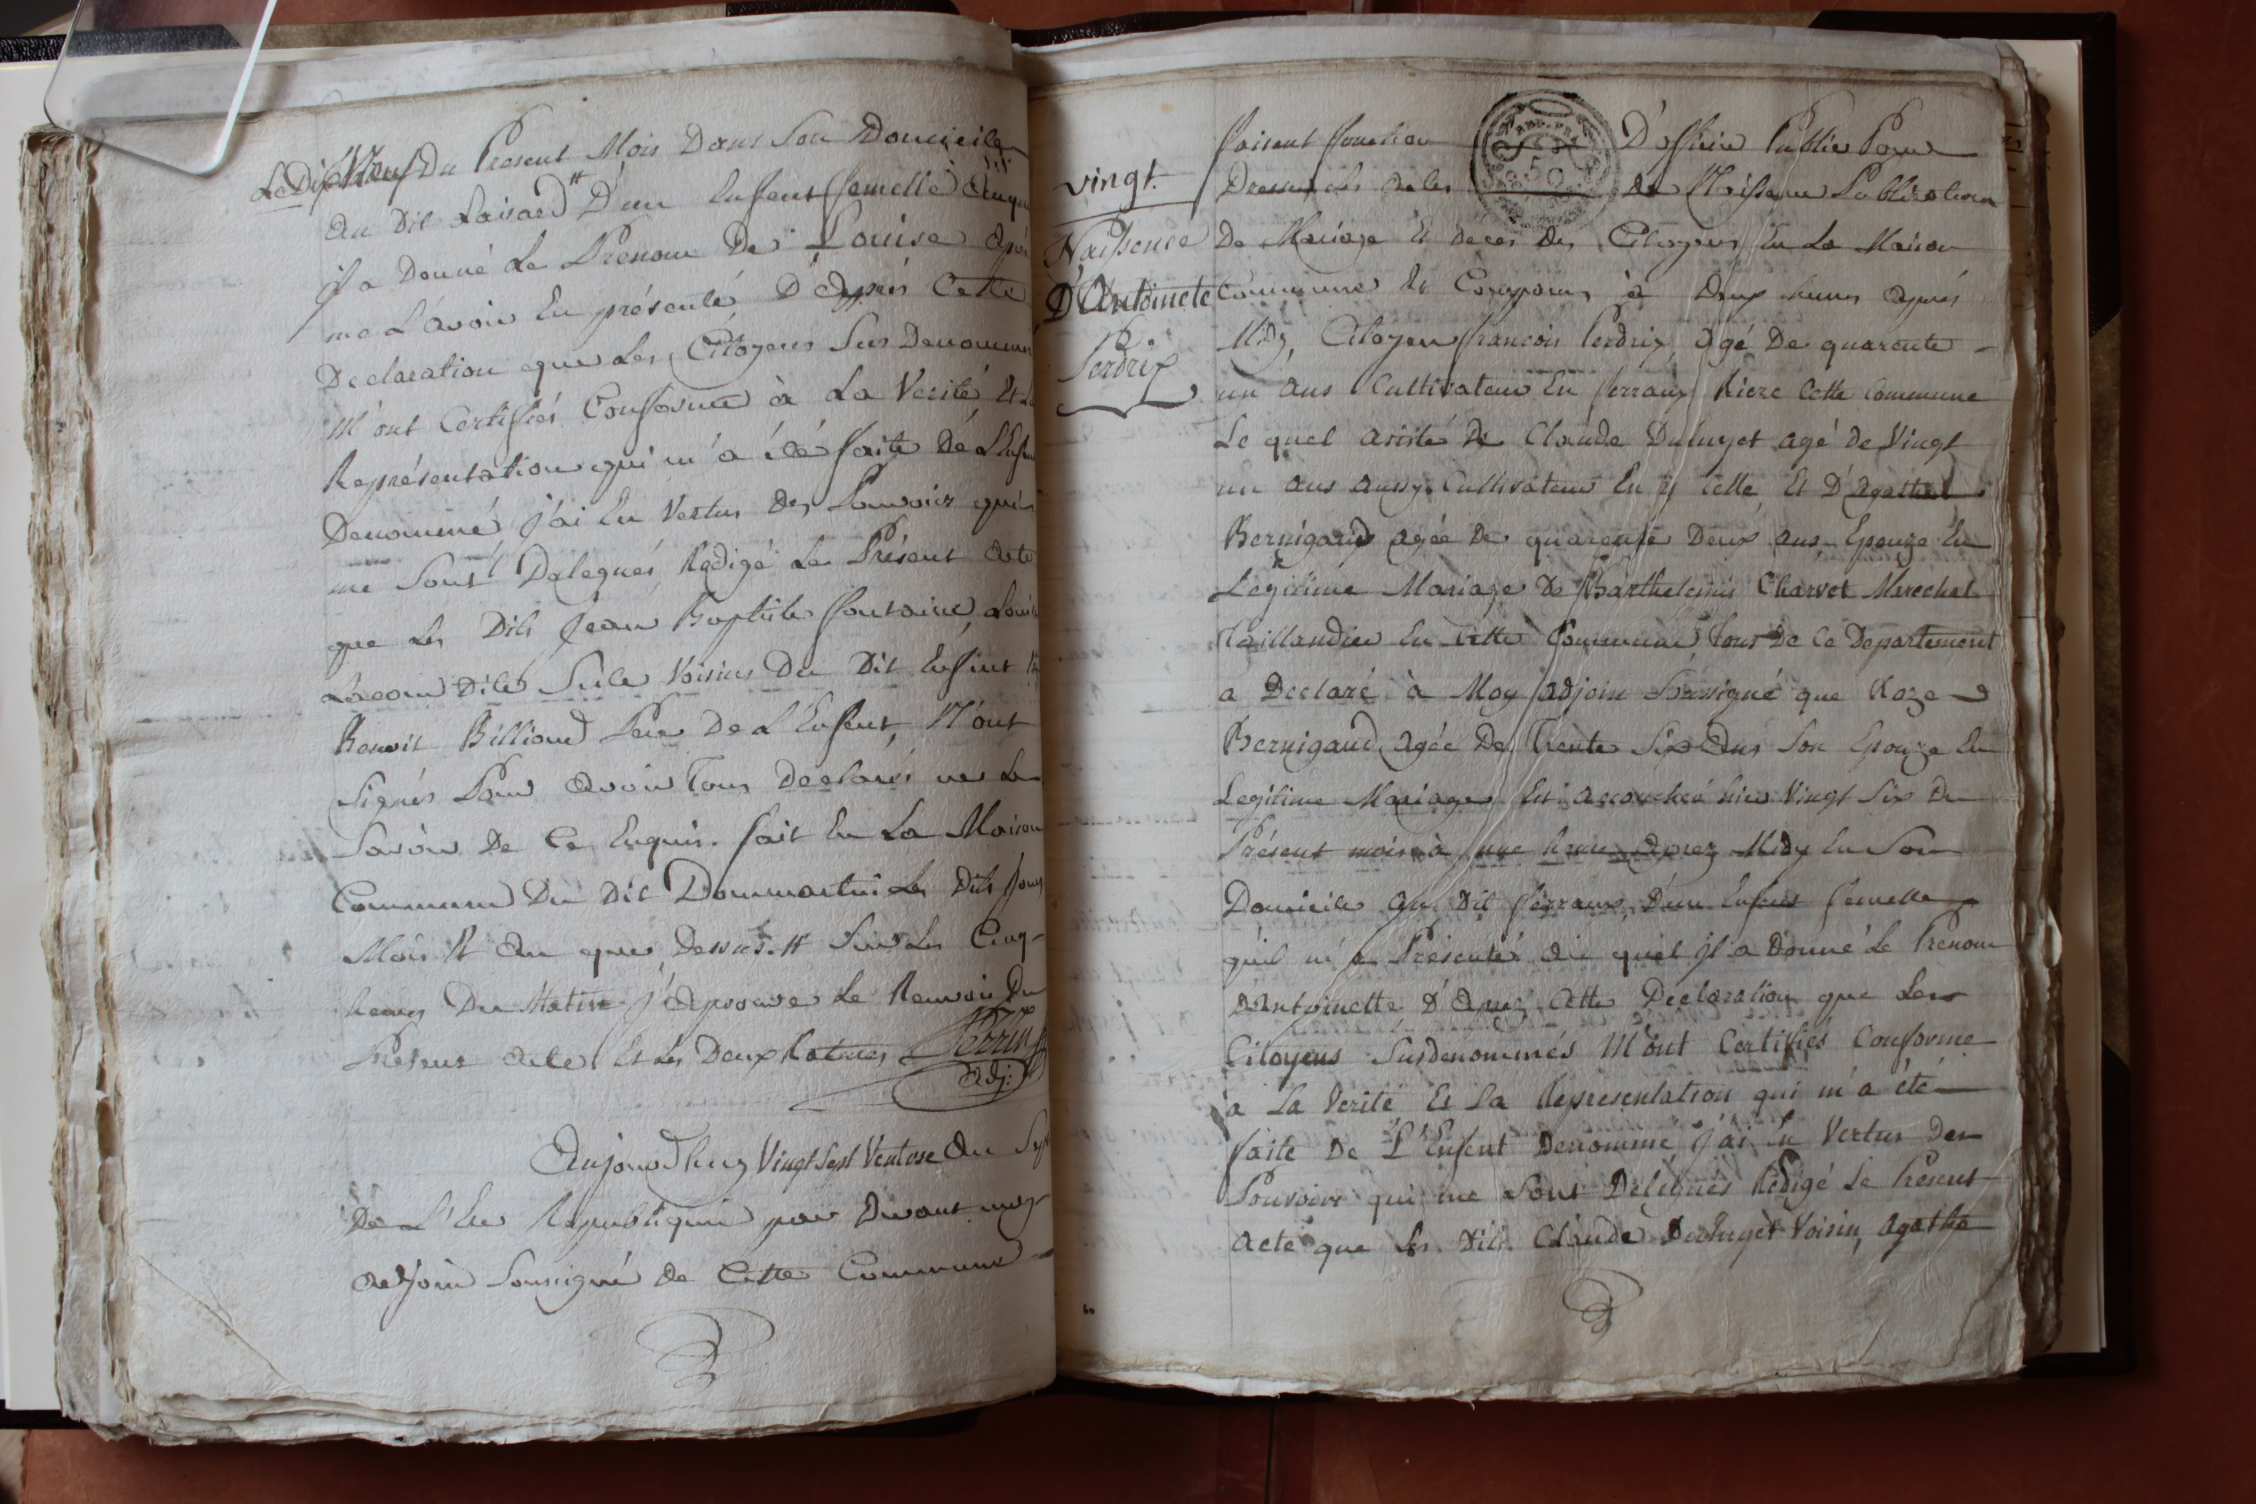 Le Dix Neuf Du Present Mois Dans Son Domicile
Au Dit Laisard D'un Enfent femelle Auquel
il a Donné Le Prenom De Louise Aprés
me L'avoir En présenté D'Aprés Cette
Declaration que Les Citoyens Sus Denommés
M'ont Certifiés Conforme à La Verité Et La
Représentation qui m'a été faite De L'Enfent
Denommé j'ai En Vertus Des Pouvoirs qui
me Sont Delegués Rédigé Le Présent Acte
que Les Dits Jean Baptiste Fontaine, Louise
Voisins Du Dit Enfent Et
Benoit Billioud Pere De L'Enfent, N'ont
Signés Pour Avoir Tous Declarés ne Le
Savoir De Ce Enquis. fait En La Maison
Commune Du Dit Dommartin Les Dits Jour
Mois Et An que Dessus. # Sur Les Cinq
heures Du Matin j'Aprouve Le Renvoi Du
Présent Acte Et Les Deux Ratures Perrin
Adj:
Aujourd'huy Vingt Sept Ventose An Sept
De L'Ere Republiquain par Devant moy
Adjoin Soussigné De Cette Commune
vingt.
Naissence
D'Antoinete
Perdrix
faisent fonction D'officier Public Pour
Dresser Les Actes de Naissance Publication
De Mariage Et déces Des Citoyens En La Maison
Commune Et Comparus à Deux heures Aprés
Midy, Citoyen françois Perdrix Agé De quarente
un ans Cultivateur En ferraux Riere Cette Commune
Le quel Assisté De Claude Duluget agé de Vingt
un ans aussy Cultivateur En y Celle Et D'Agathe
Bernigaud agée De quarente Deux ans Epouze En
Légitime Mariage De Barthelemis Charvet Marechal
Taillandier En Cette Commune tous De Ce Departement
a Declaré à Moy Adjoin Soussigné que Roze
Bernigaud agée De Trente Six Ans Son Epouze En
Legitime Mariage Est accouchée hier Vingt Six Du
Présent mois à une heure Aprez Midy En Son
Domicile Au Dit ferraux D'un Enfent femelle
qu'il m'a Présenté Au quel il a Donné Le Prenom
D'Antoinette D'Aprez Cette Declaration que Les
Citoyens Susdenommés M'ont Certifiés Conforme
à La Verité Et La Representation qui m'a été
faite De L'Enfent Denommé j'ai En Vertus Des
Pouvoirs qui me Sont Delegués Rédigé Le Present
Acte que Les Dits Claude Duluget Voisin, Agathe